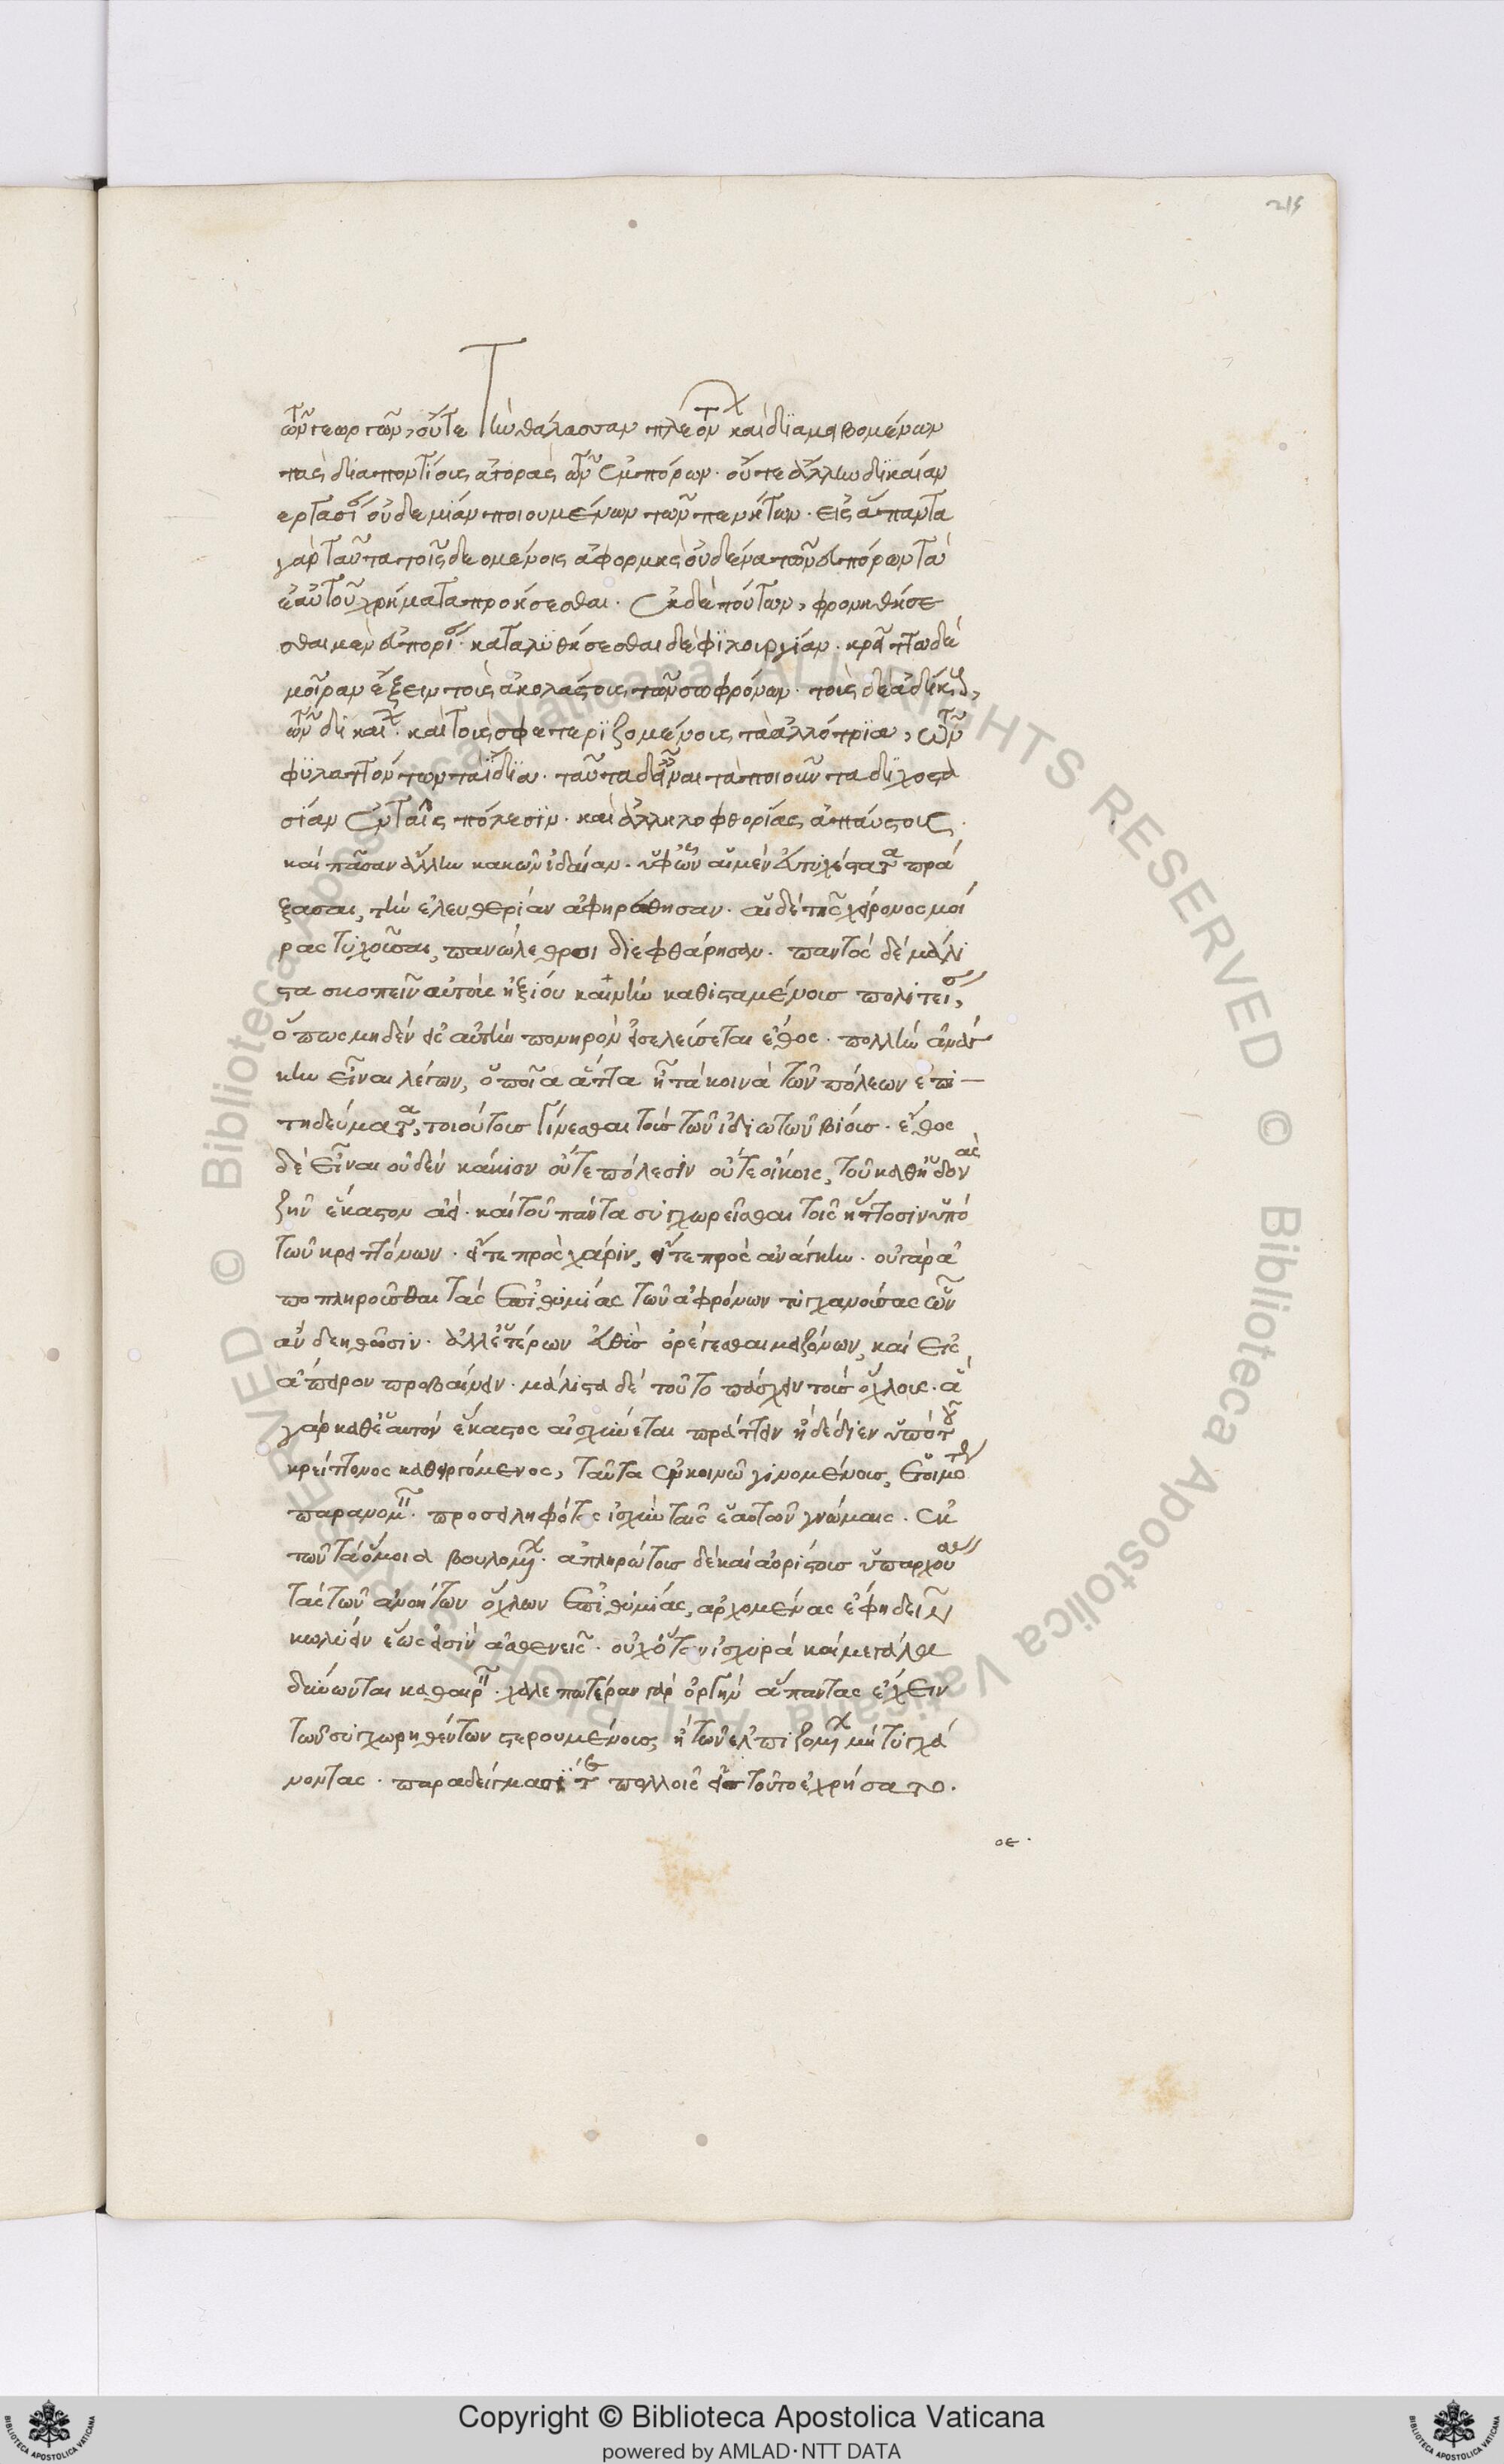 215
τῶν γεωργῶν, οὔτε τὴν θάλασσαν πλεόντων καὶ διαμειβομένων
τὰς διαποντίοις ἀγορὰς τῶν ἐμπόρων. οὔτε ἄλλην δικαίαν
ἐργασίαν οὐδεμίαν ποιουμένων τῶν πενήτων. εἰς ἅπαντα
γὰρ ταῦτα τοῖς δεομένοις ἀφορμῆς οὐδένα τῶν εὐπόρων τὰ
ἑαυτοῦ χρήματα προήσεσθαι. ἐκ δὲ τούτων, φθονηθήσε
σθαι μὲν εὐπορίαν. καταλυθήσεσθαι δὲ φιλοεργίαν. κρείττω δὲ
μοῖραν ἕξειν τοὺς ἀκολάστους τῶν σωφρόνων. τοὺς δὲ ἀδίκους,
τῶν δικαίων. καὶ τοὺς σφετεριζομένους τὰ ἀλλότρια, τῶν
φυλαττόντων τὰ ἴδια. ταῦτα δ' εἶναι τὰ ποιοῦντα διχοστα
σίαν ἐν ταῖς πόλεσιν. καὶ ἀλληλοφθορίας ἀπαύστους.
καὶ πᾶσαν ἄλλην κακῶν ἰδέαν. ὑφ' ὧν αἱ μὲν εὐτυχέστατα πρά
ξασαι, τὴν ἐλευθερίαν ἀφῃρέθησαν. αἱ δὲ τῆς χείρονος μοί
ρας τυχοῦσαι, πανώλεθροι διεφθάρησαν. παντὸς δὲ μάλι
στα σκοπεῖν αὐτοὺς ἠξίου καινὴν καθισταμένους πολιτείαν,
ὅπως μηδὲν εἰς αὐτὴν πονηρὸν εἰσελεύσεται ἔθος. πολλὴν ἀνάγ
κην εἶναι λέγων, ὁποῖα ἄττα ᾖ τὰ κοινὰ τῶν πόλεων ἐπι
τηδεύματα, τοιούτους γίνεσθαι τοὺς τῶν ἰδιωτῶν βίους. ἔθος
δὲ εἶναι οὐδὲν κάκιον οὔτε πόλεσιν οὔτε οἴκοις, τοῦ καθ' ἡδονὰς
ζῆν ἕκαστον ἀεί. καὶ τοῦ πάντα συγχωρεῖσθαι τοῖς ἥττοσιν ὑπὸ
τῶν κρειττόνων. εἴτε πρὸς χάριν, εἴτε πρὸς ἀνάγκην. οὐ γὰρ ἀ
ποπληροῦσθαι τὰς ἐπιθυμίας τῶν ἀφρόνων τυγχανούσας ὧν
ἂν δεηθῶσιν. ἀλλ' ἑτέρων εὐθὺς ὀρέγεσθαι μειζόνων, καὶ εἰς
ἄπειρον προβαίνειν. μάλιστα δὲ τοῦτο πάσχειν τοὺς ὄχλους. ἃ
γὰρ καθ' ἑαυτὸν ἕκαστος αἰσχύνεται πράττειν ἢ δέδιεν ὑπὸ τοῦ
κρείττονος κατειργόμενος, ταῦτα ἐν κοινῷ γινομένους, ἑτοιμότερον
παρανομεῖν. προσειληφότας ἰσχὺν ταῖς ἑαυτῶν γνώμαις. ἐκ
τῶν τὰ ὅμοια βουλομένων. ἀπληρώτους δὲ καὶ ἀορίστους ὑπαρχούσας
τὰς τῶν ἀνοήτων ὄχλων ἐπιθυμίας, ἀρχομένας ἔφη δεῖν
κωλύειν ἕως εἰσὶν ἀσθενεῖς. οὐχ ὅταν ἰσχυρὰ καὶ μεγάλαι
δύνωνται καθαιρεῖν. χαλεπωτέραν γὰρ ὀργὴν ἅπαντας ἔχειν
τῶν συγχωρηθέντων στερουμένους, ἢ τῶν ἐλπιζομένων μὴ τυγχά
νοντας. παραδείγμασί τε πολλοῖς εἰς τοῦτο ἐχρήσατο.
οε.
Copyright © Biblioteca Apostolica Vaticana
powered by AMLAD·NTT DATA